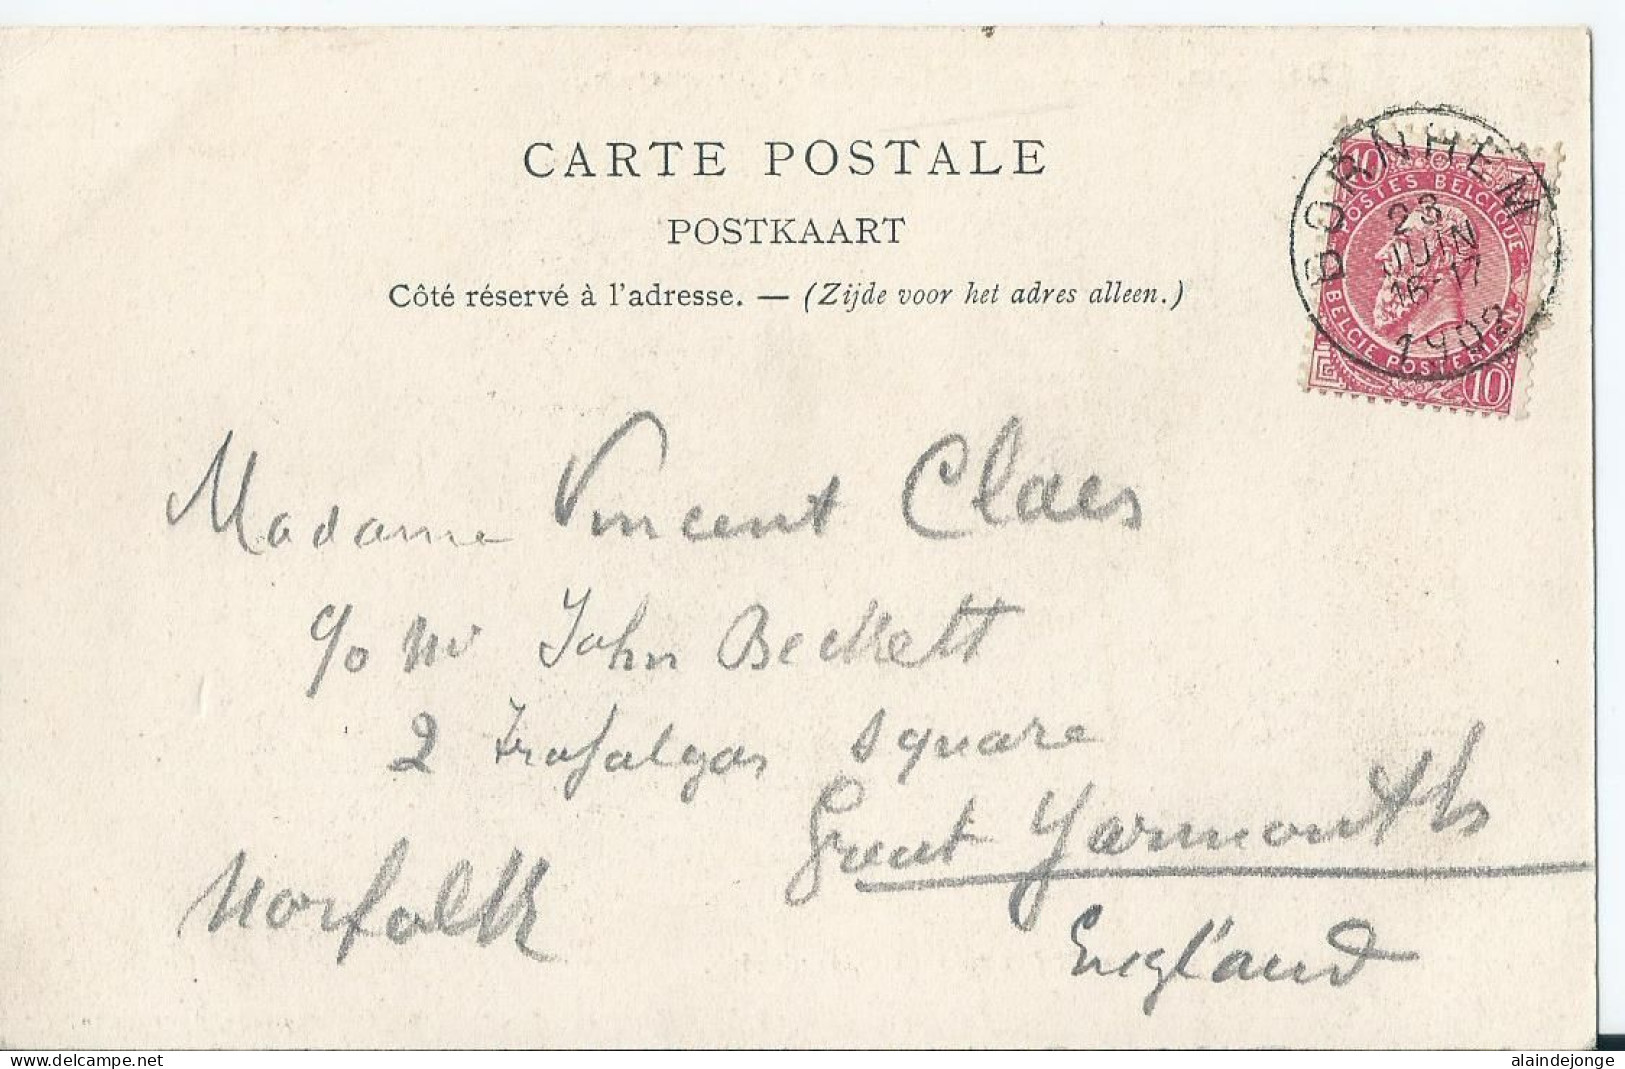 CARTE POSTALE
POSTKAART
Côté réservé à l'adresse. — (Zijde voor het adres alleen.)
BORNHEM
23
JUIN
16-17
10
POSTES BELGIQUE
BELGIE POSTERIJEN
10
Madame Vincent Claes
c/o Mr John Beckett
2 Trafalgar Square
Great Yarmouth
Norfolk
England
alaindejonge
https://www.delcampe.net